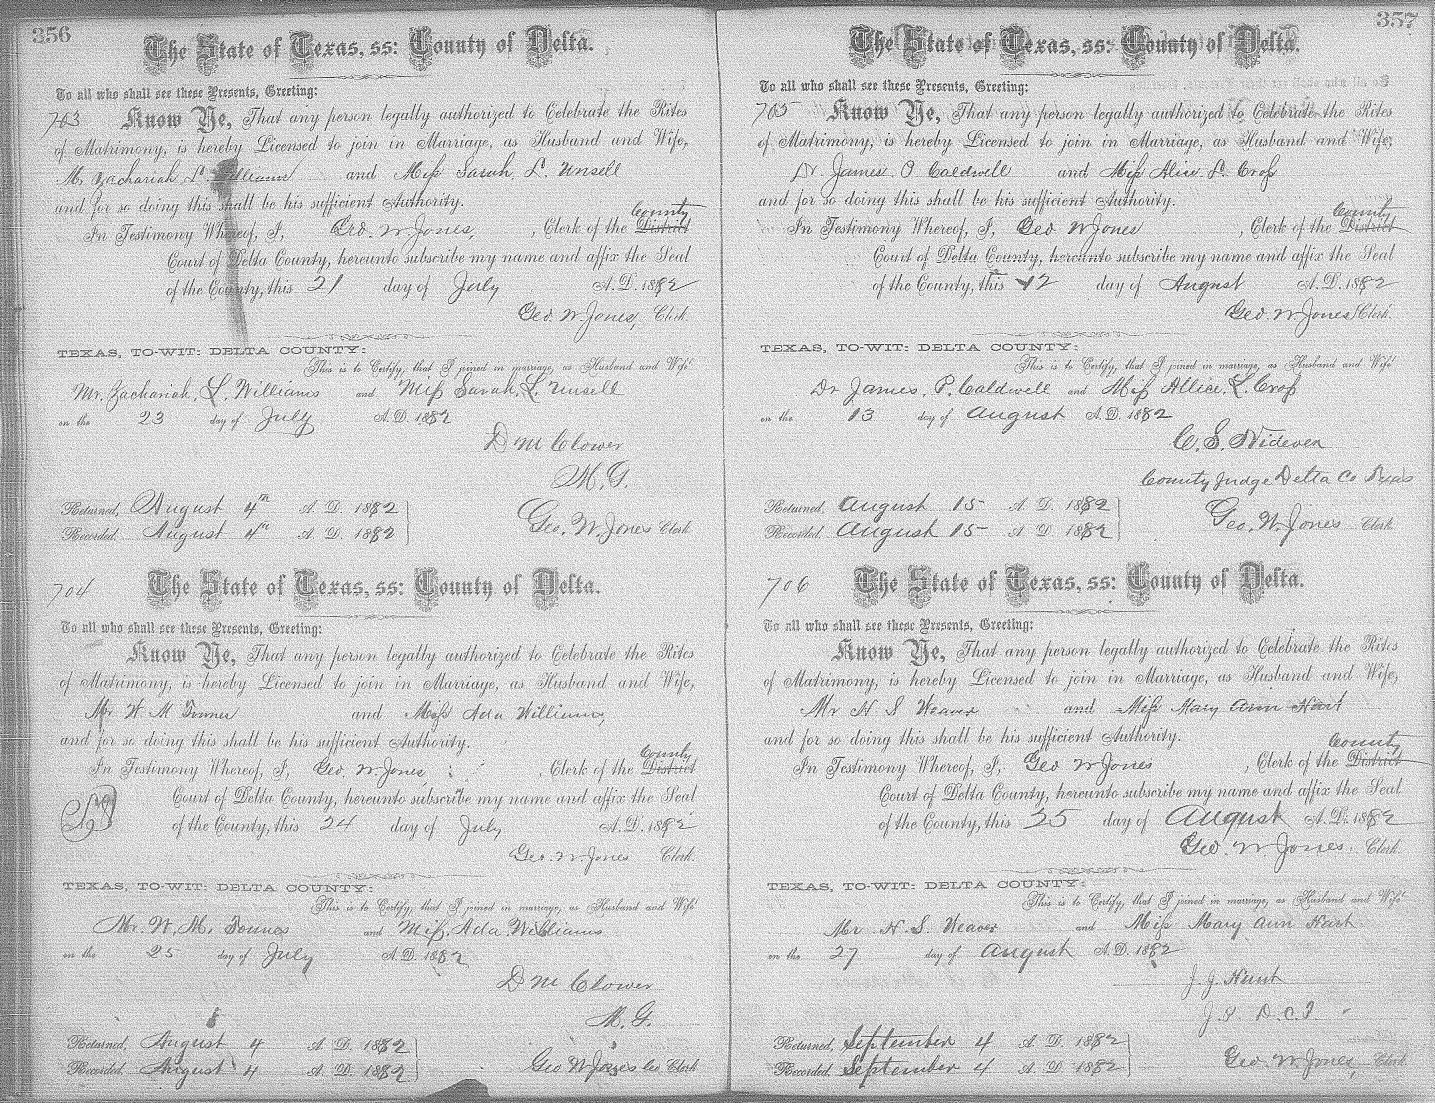 356
The State of Texas, ss: County of Delta.
To all who shall see these Presents, Greeting:
703 Know Ye, That any person legally authorized to Celebrate the Rites
of Matrimony, is hereby Licensed to join in Marriage, as Husband and Wife,
M. Zachariah L. Williams and Miss Sarah L. Unsell
and for so doing this shall be his sufficient Authority.
County
In Testimony Whereof, I, Geo. W Jones, , Clerk of the District
Court of Delta County, hereunto subscribe my name and affix the Seal
of the County, this 21 day of July A. D. 1882
Geo. W Jones, Clerk.
TEXAS, TO-WIT: DELTA COUNTY:
This is to Certify, that I joined in marriage, as Husband and Wife
Mr. Zachariah, L. Williams and Miss Sarah, L. Unsell
on the 23 day of July A. D. 1882
D M Clower
M. G.
Returned, August 4th A. D. 1882
Recorded, August 4th A. D. 1882
Geo. W. Jones Clerk
704 The State of Texas, ss: County of Delta.
To all who shall see these Presents, Greeting:
Know Ye, That any person legally authorized to Celebrate the Rites
of Matrimony, is hereby Licensed to join in Marriage, as Husband and Wife,
Mr W M and Miss Ada Williams,
and for so doing this shall be his sufficient Authority.
County
In Testimony Whereof, I, Geo. W. Jones, , Clerk of the District
Court of Delta County, hereunto subscribe my name and affix the Seal
of the County, this 24 day of July A. D. 1882
Geo. W Jones Clerk.
TEXAS, TO-WIT: DELTA COUNTY:
This is to Certify, that I joined in marriage, as Husband and Wife
Mr. W. M. and Miss, Ada Williams
on the 25 day of July A. D. 1882
D M Clower
M. G.
Returned, August 4 A. D. 1882
Recorded, August 4 A. D. 1882
Geo W Jones Co Clerk
357
The State of Texas, ss: County of Delta.
To all who shall see these Presents, Greeting:
705 Know Ye, That any person legally authorized to Celebrate the Rites
of Matrimony, is hereby Licensed to join in Marriage, as Husband and Wife,
Dr. James P Caldwell and Miss Alice L. Cross
and for so doing this shall be his sufficient Authority.
County
In Testimony Whereof, I, Geo W Jones , Clerk of the District
Court of Delta County, hereunto subscribe my name and affix the Seal
of the County, this 12 day of August A. D. 1882
Geo. W Jones Clerk.
TEXAS, TO-WIT: DELTA COUNTY:
This is to Certify, that I joined in marriage, as Husband and Wife
Dr James, P. Caldwell and Miss Allice, L. Cross
on the 13 day of August A. D. 1882
C. S. Nidever
County Judge Delta Co Texas
Returned, August 15 A. D. 1882
Recorded, August 15 A. D. 1882
Geo. W. Jones Clerk
706 The State of Texas, ss: County of Delta.
To all who shall see these Presents, Greeting:
Know Ye, That any person legally authorized to Celebrate the Rites
of Matrimony, is hereby Licensed to join in Marriage, as Husband and Wife,
Mr N S Weaver and Miss Mary Ann Hart
and for so doing this shall be his sufficient Authority.
County
In Testimony Whereof, I, Geo W Jones , Clerk of the District
Court of Delta County, hereunto subscribe my name and affix the Seal
of the County, this 25 day of August A. D. 1882
Geo. W Jones Clerk.
TEXAS, TO-WIT: DELTA COUNTY:
This is to Certify, that I joined in marriage, as Husband and Wife
Mr N. S. Weaver and Miss Mary Ann Hart
on the 27 day of August A. D. 1882
J. J. Hunt
J. P. D. C. T.
Returned, September 4 A. D. 1882
Recorded, September 4 A. D. 1882
Geo. W. Jones, Clerk